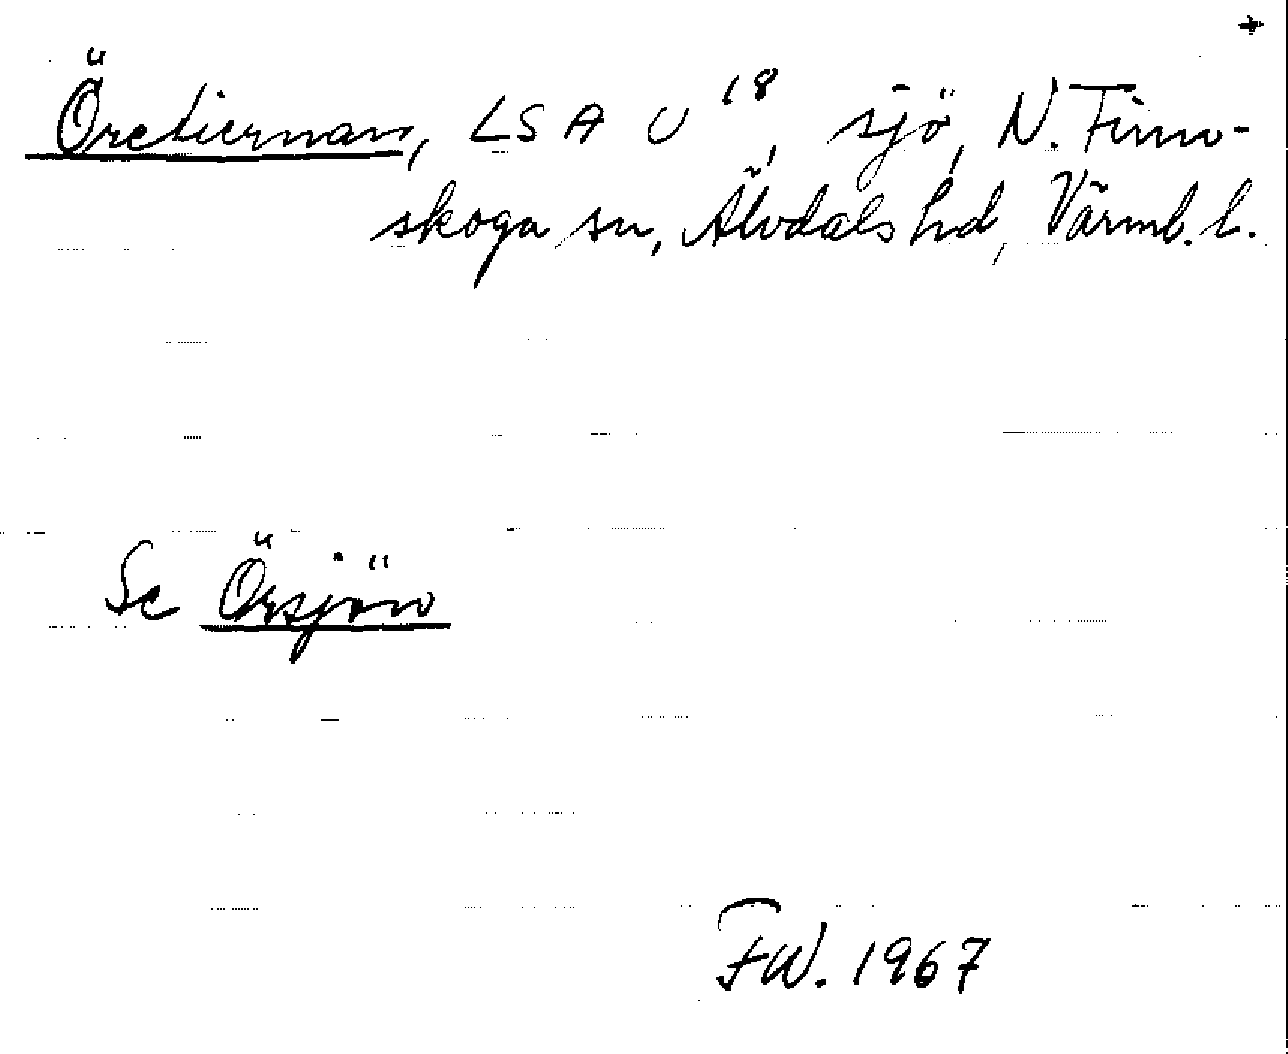 +
Öretiernan, LSA U 18, sjö, N. Finn-
skoga sn, Älvdals hd, Värml. l.
Se Örsjön
FW. 1967